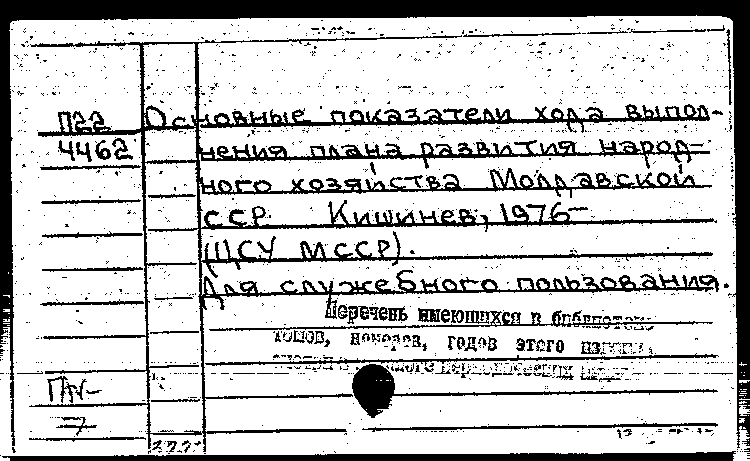 П22 Основные показатели хода выпол-
4462 нения плана развития народ-
ного хозяйства Молдавской
ССР. Кишинев, 1976-
(ЦСУ МССР).
Для служебного пользования.
Перечень имеющихся в библиотеке
томов, номеров, годов этого